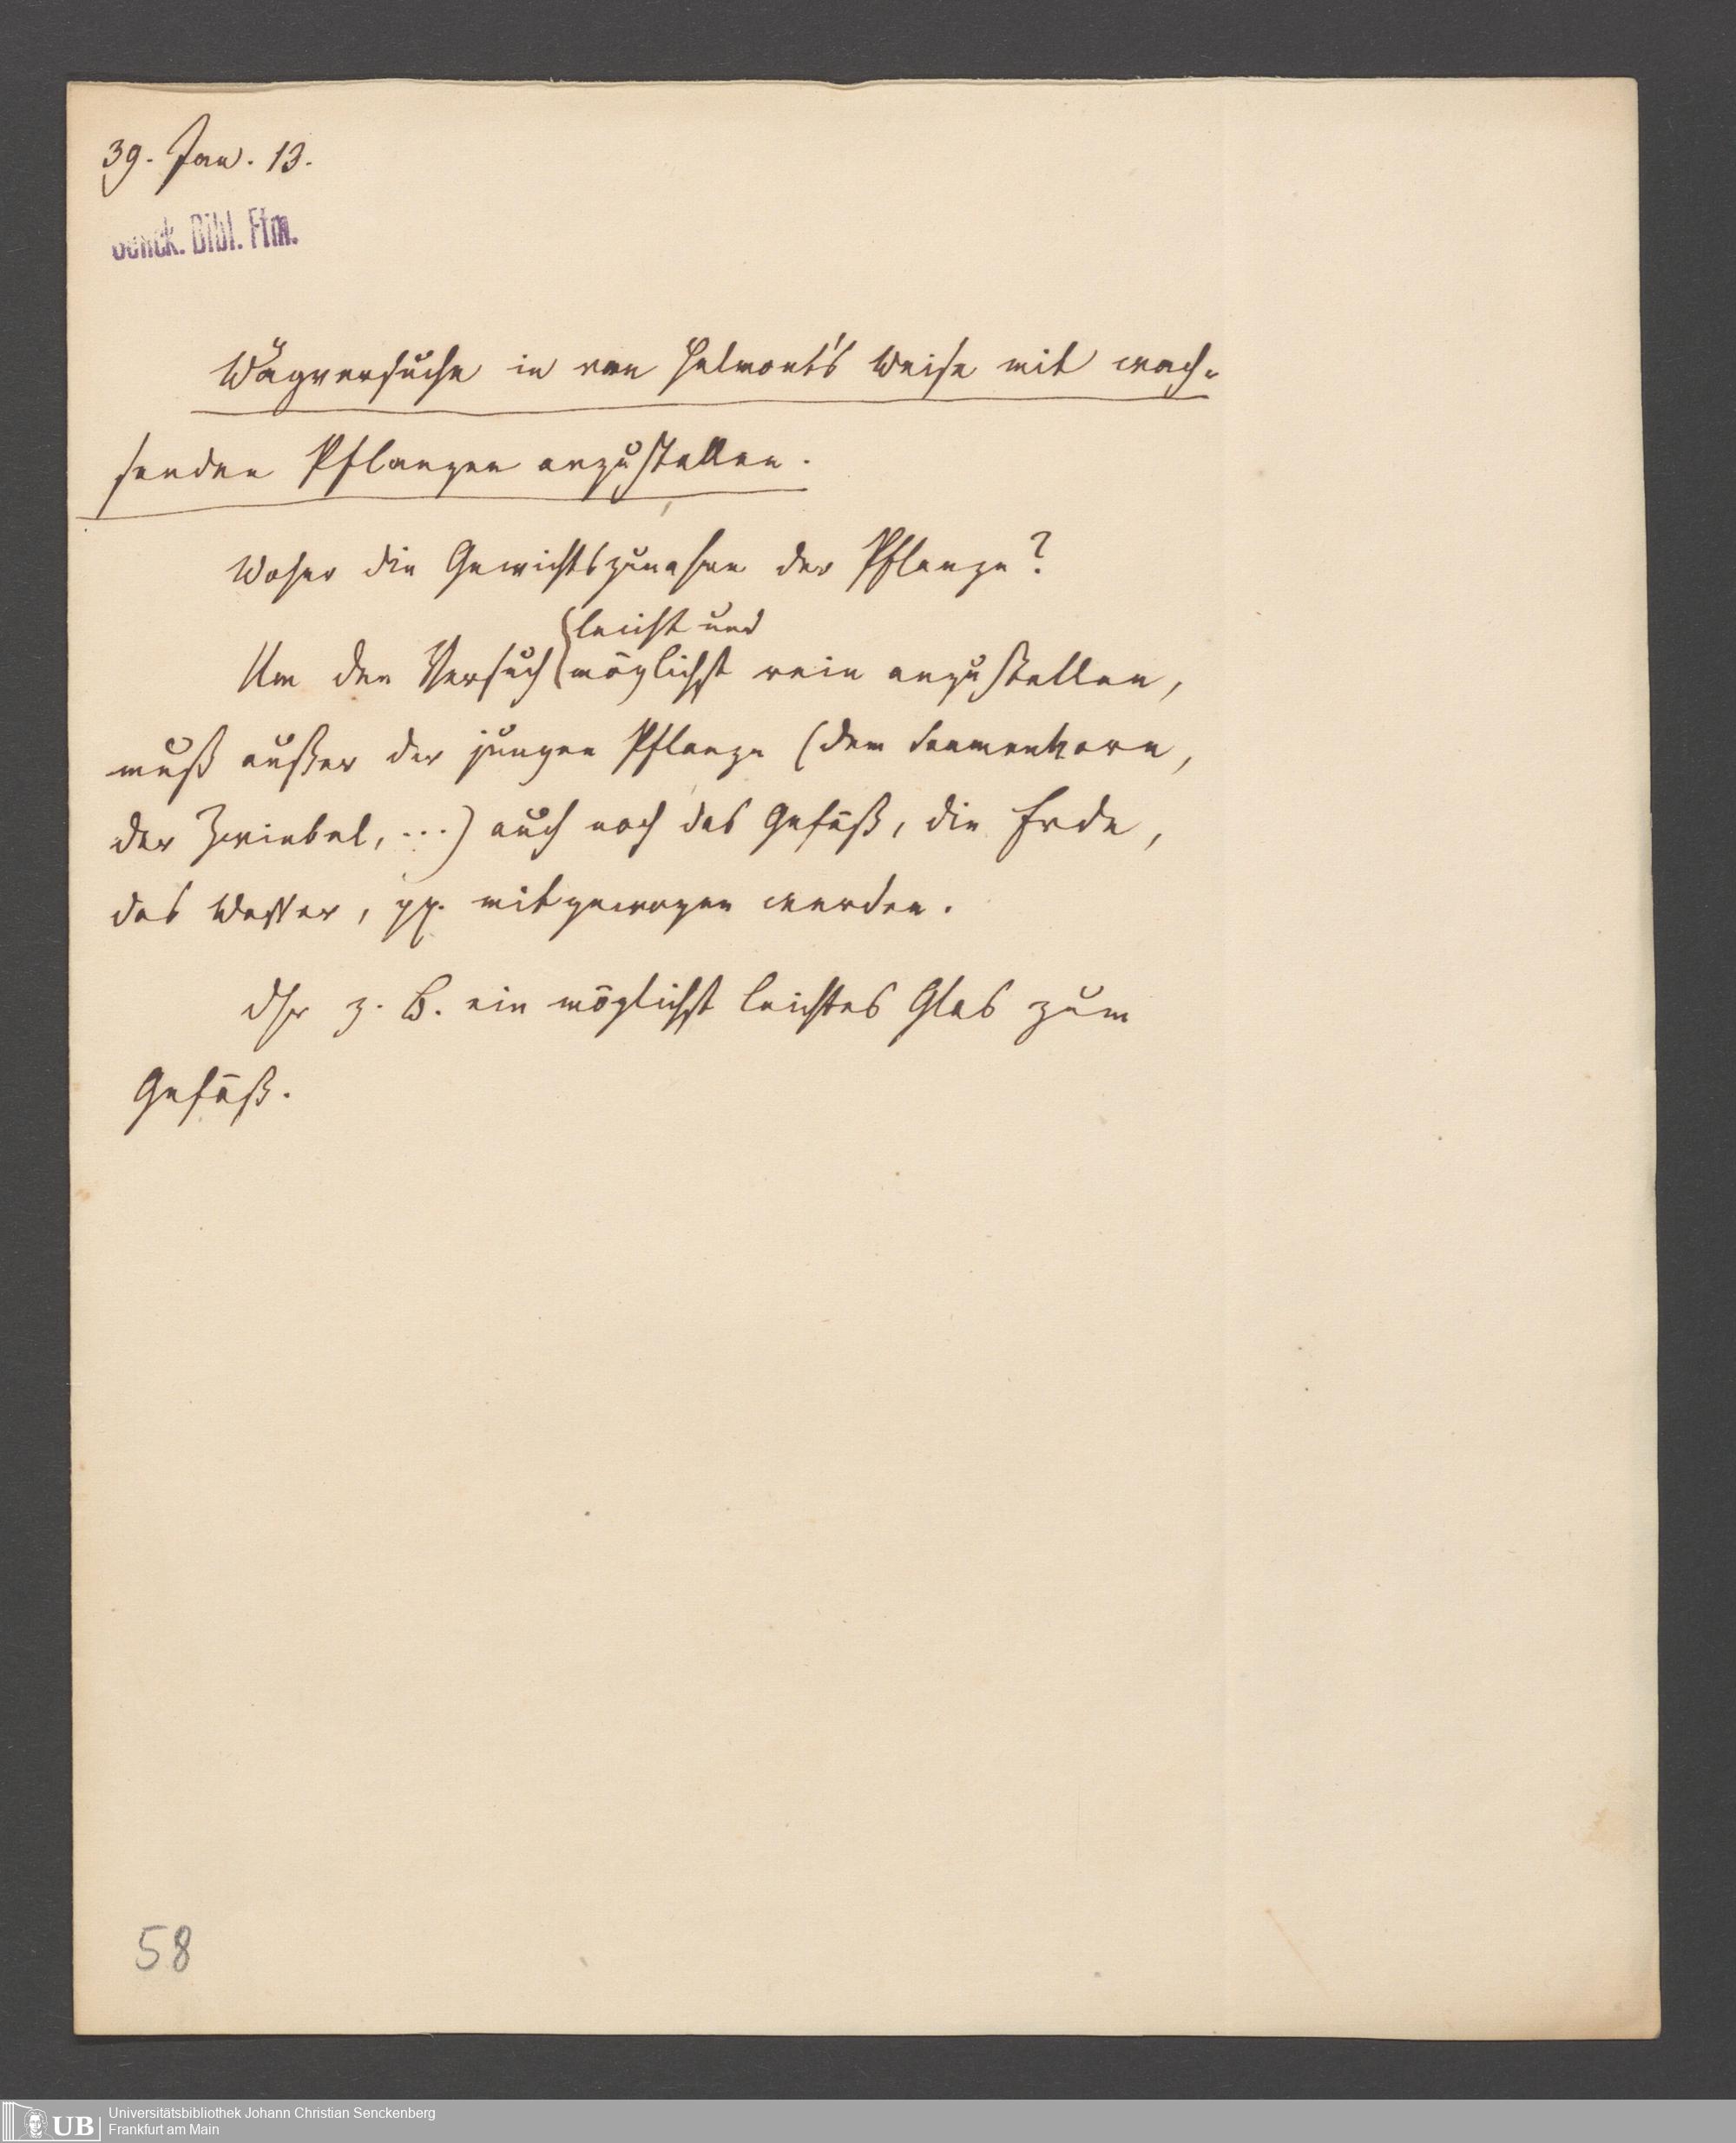 39. Jan. 13.
Senck. Bibl. Ffm.
Wägversuche in van Helmont's Weise mit wach-
senden Pflanzen anzustellen.
Woher die Gewichtszunahme der Pflanze?
leicht und
Um den Versuch möglichst rein anzustellen,
muß außer der jungen Pflanze (dem Saamenkorn,
der Zwiebel, ...) auch noch das Gefäß, die Erde,
das Wasser, pp. mitgewogen werden.
Dhr z. B. ein möglichst leichtes Glas zum
Gefäß.
58
UB
Universitätsbibliothek Johann Christian Senckenberg
Frankfurt am Main